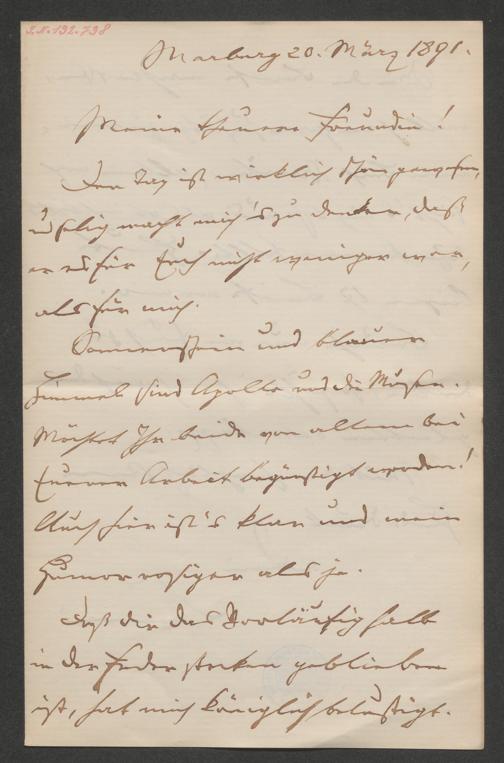 I.N. 192.738
Marburg 20. März 1891.
Meine theuere Freundin!
Der Tag ist wirklich schön gewesen,
u selig macht mich's zu denken, daß
er es für Euch nicht weniger war,
als für mich.
Sonnenschein und blauer
Himmel sind Apollo und die Musen.
Möchtet Ihr beide von allem bei
Euerer Arbeit begünstigt werden!
Auch hier ist's klar und mein
Humor rosiger als je.
Daß dir das Vorläufig halb
in der Feder stecken geblieben
ist, hat mich königlich belustigt.